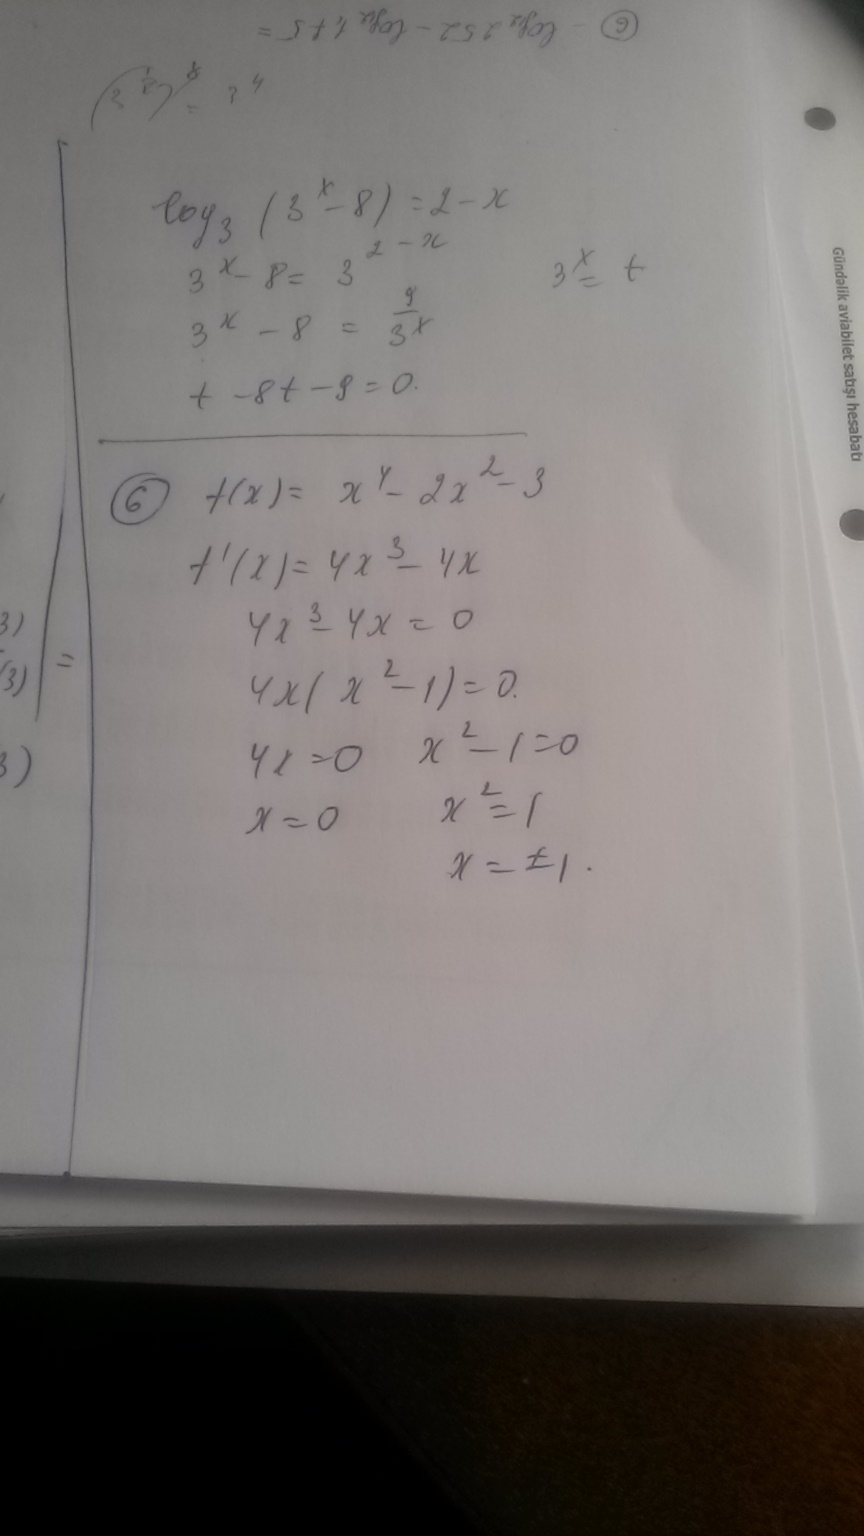 ⑥ - log₂ 252 - log₂ 1,75 =
= 3⁴
log₃ (3ˣ - 8) = 2 - x
3ˣ - 8 = 3²⁻ˣ 3ˣ = t
3ˣ - 8 = 9/3ˣ
t - 8t - 9 = 0.
⑥ f(x) = x⁴ - 2x² - 3
f'(x) = 4x³ - 4x
4x³ - 4x = 0
4x( x² - 1) = 0.
4x = 0 x² - 1 = 0
x = 0 x² = 1
x = ±1.
3)
(3) =
3)
Gündəlik aviabilet satışı hesabatı